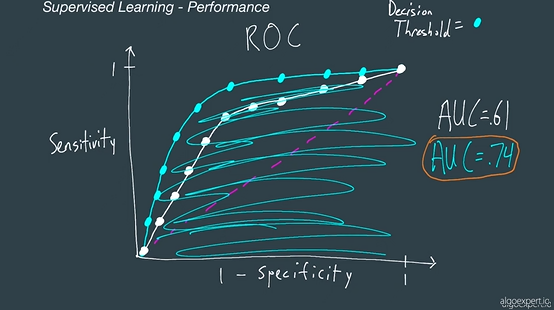 Supervised Learning - Performance
Decision
Threshold =
ROC
1
Sensitivity
AUC=.61
AUC=.74
1 - Specificity
1
algoexpert.io